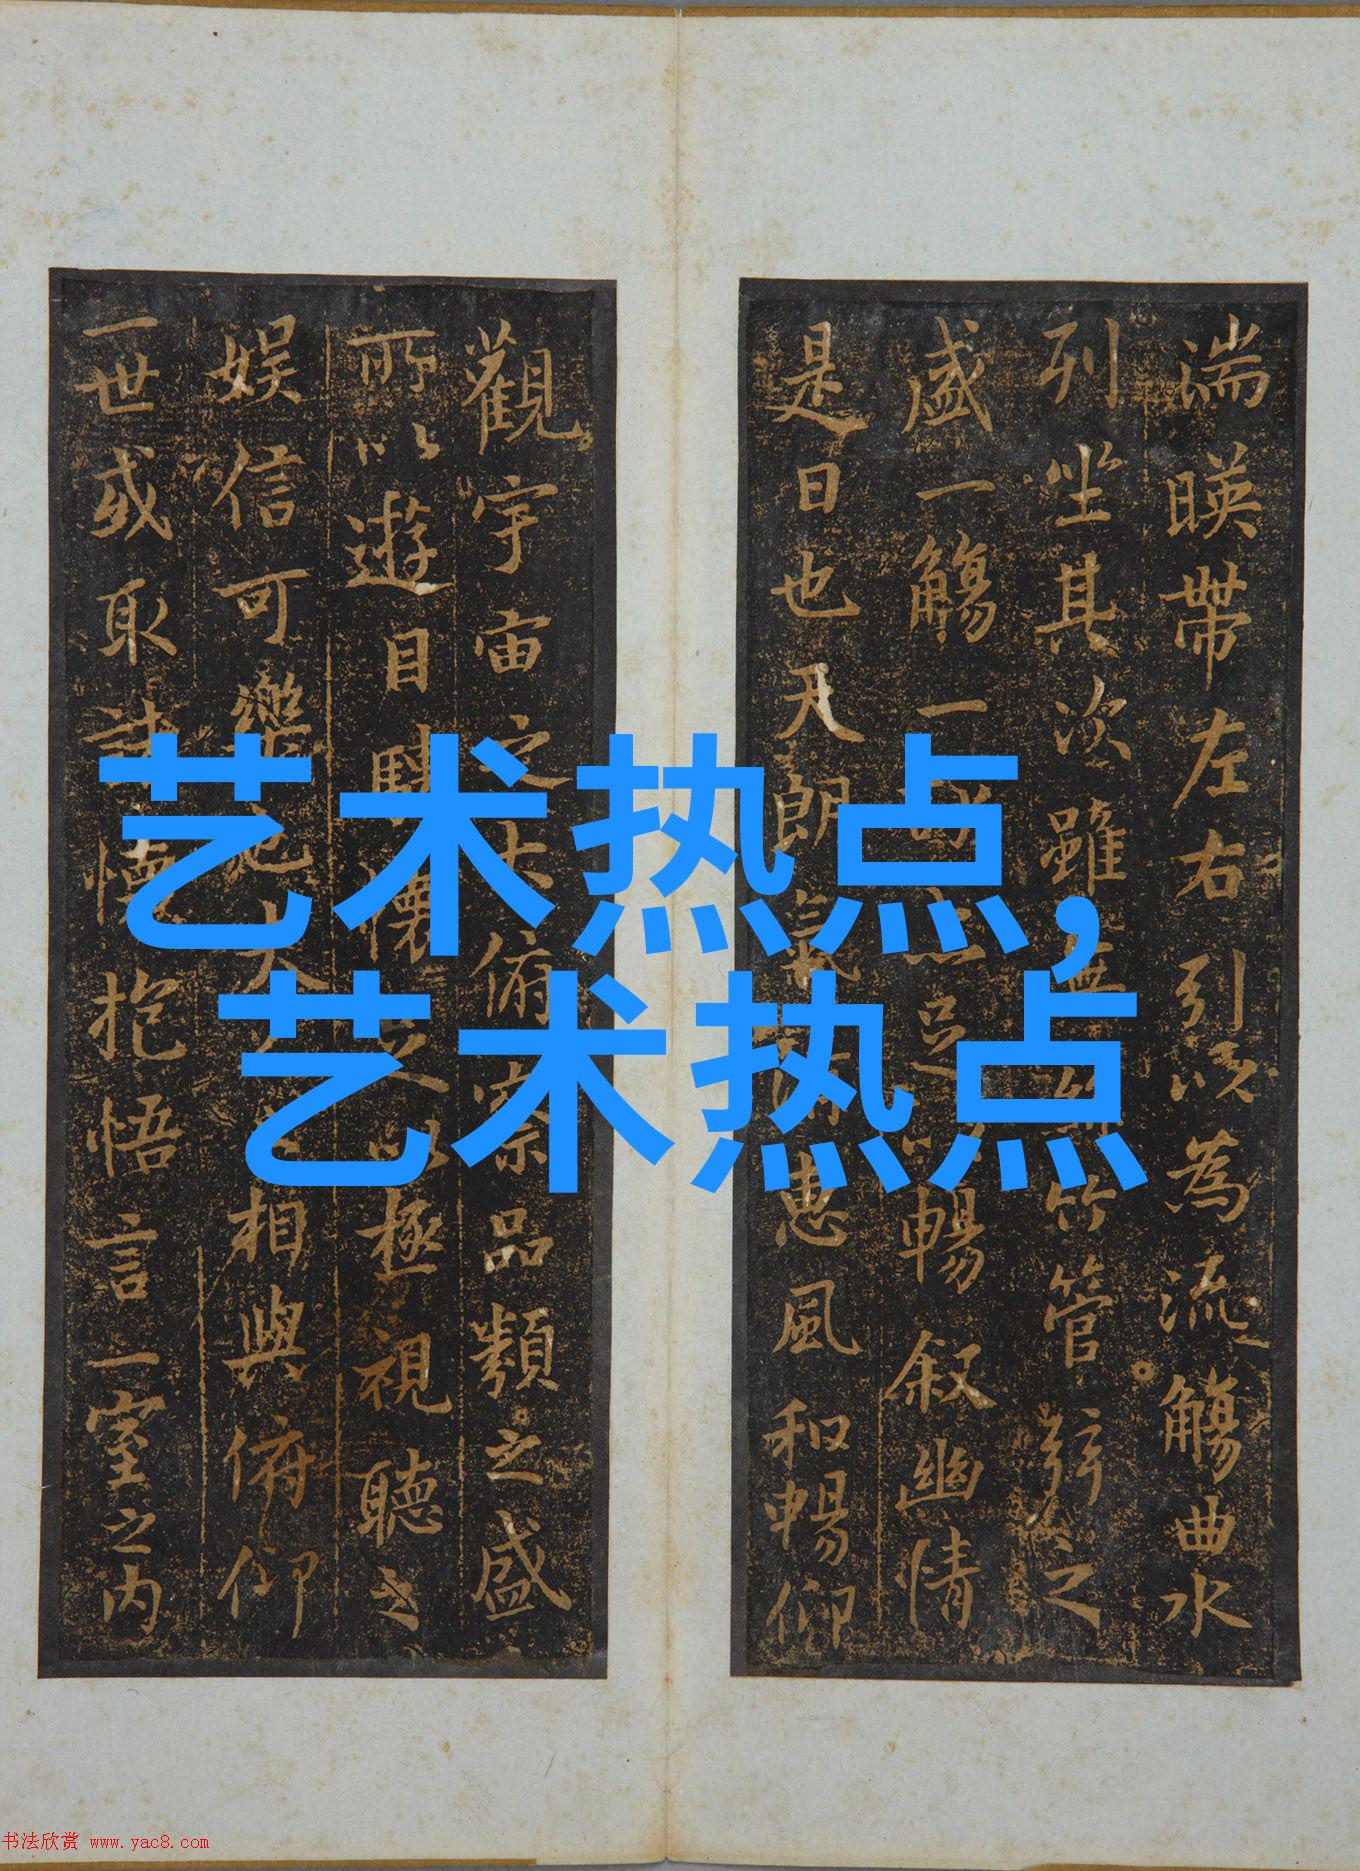 湍暎帶左右引以為流觴曲水
列坐其次雖無竹管弦之
盛一觴一足暢叙幽情
是日也天朗氣惠風和暢仰
觀宇宙之大俯察品類之盛
所以遊目騁懷以極視聽之
娱信可樂也夫相與俯仰
一世或取諸懷抱悟言一室之内
艺术热点,
艺术热点
书法欣赏 www.yac8.com